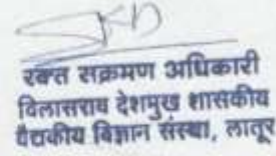 रक्त सक्रमण अधिकारी
विलासराव देशमुख शासकीय
वैद्यकीय विज्ञान संस्था, लातूर